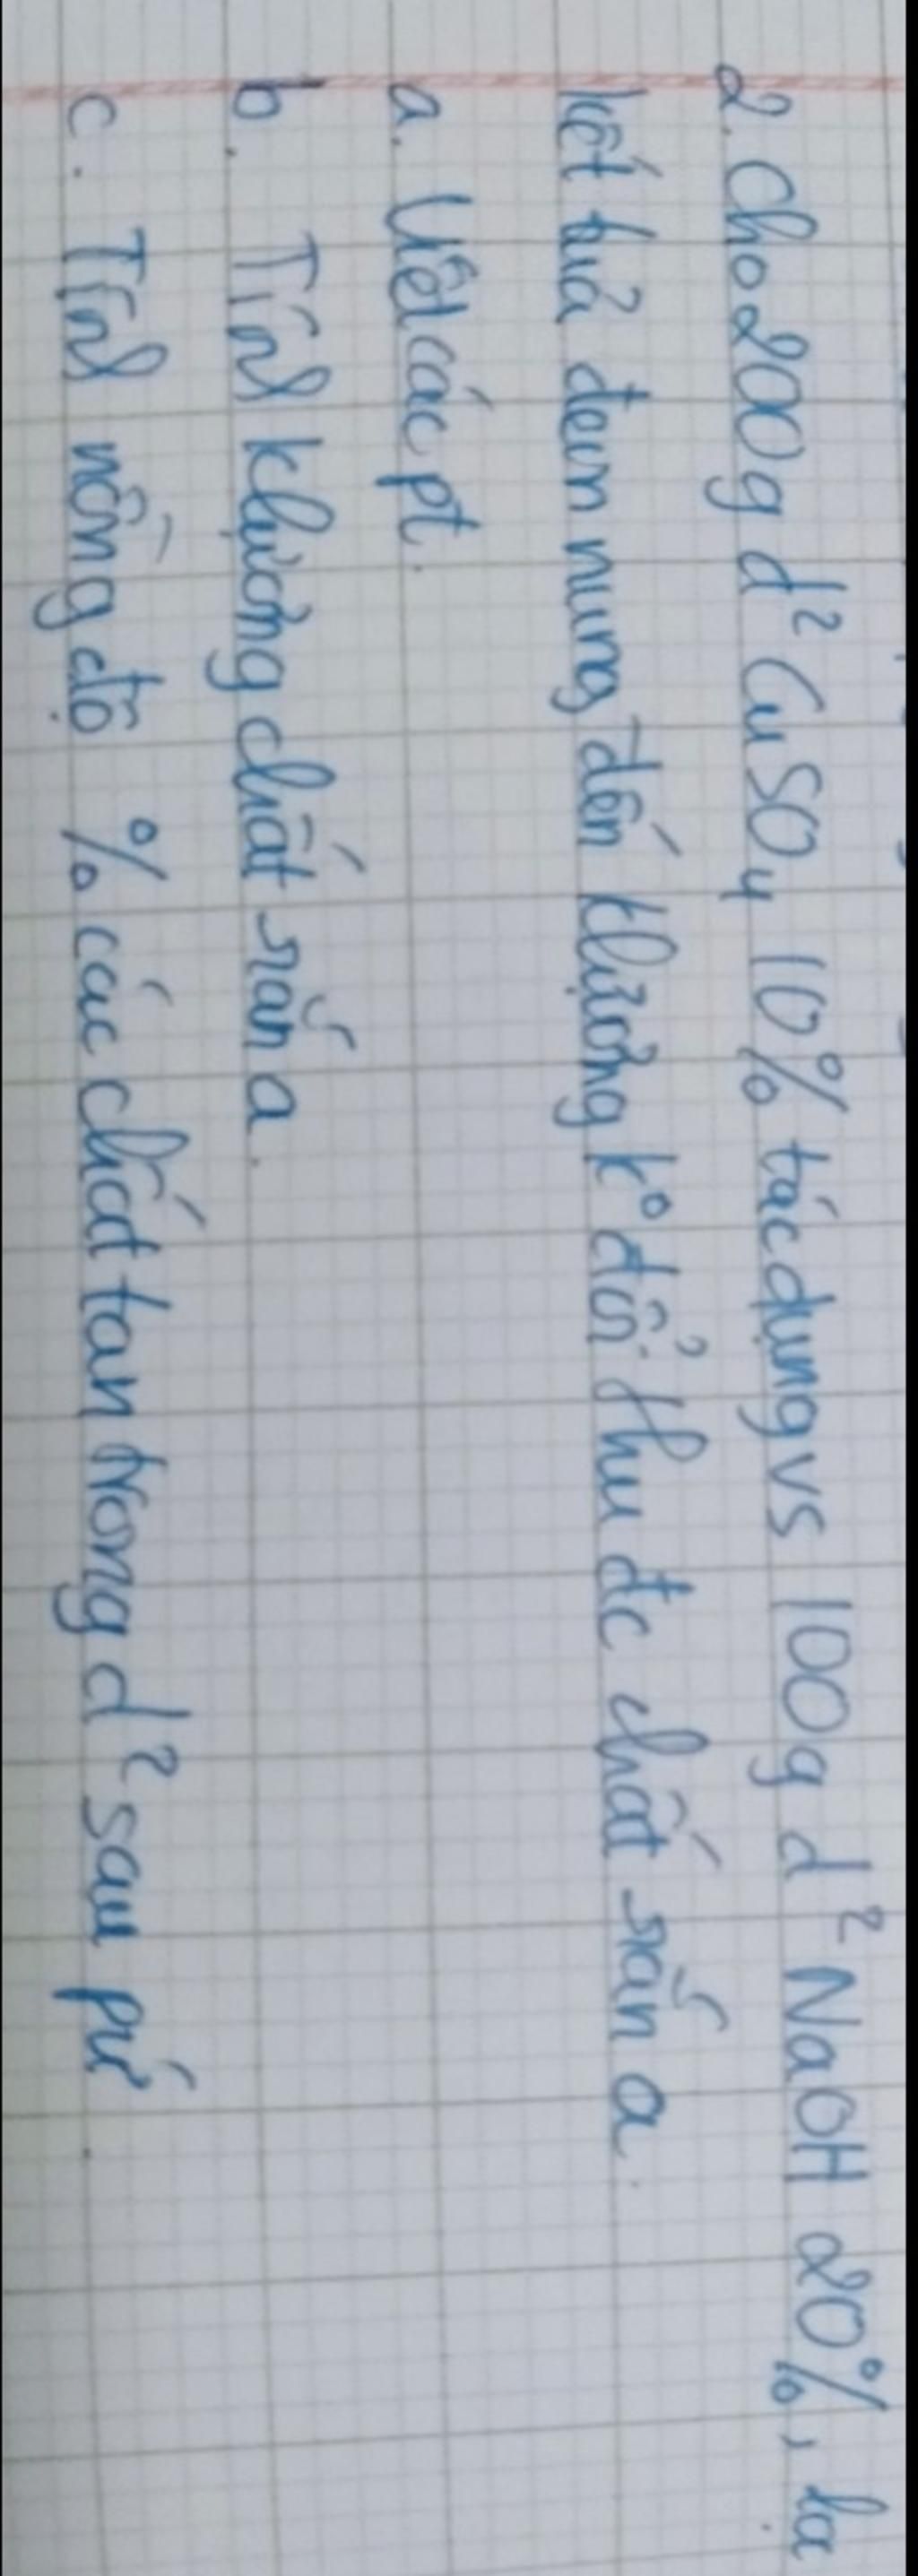 2. Cho 200g d² CuSO4 10% tác dụng vs 100g d² NaOH 20%, lọc
kết tủa đem nung đến khlượng k° đổi thu đc chất rắn a.
a. Viết các pt.
b. Tính khlượng chất rắn a.
c. Tính nồng độ % các chất tan trong d² sau pứ.